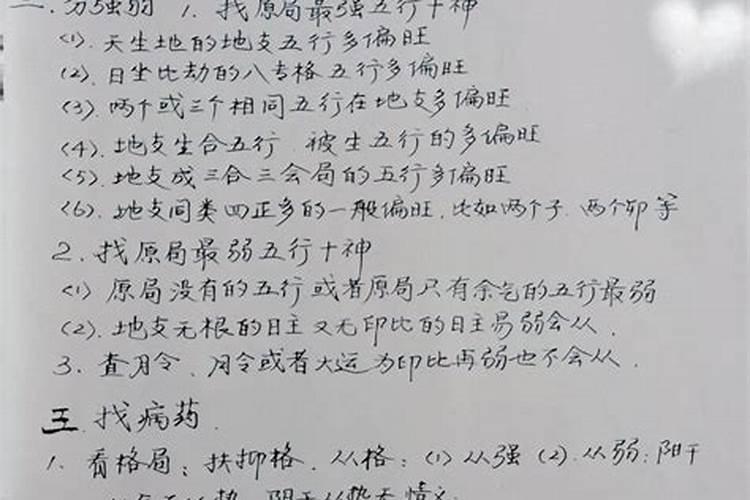 二.分强弱 1.找原局最强五行十神
(1).天生地的地支五行多偏旺
(2).日坐比劫的八专格五行多偏旺
(3).两个或三个相同五行在地支多偏旺
(4).地支生合五行 被生五行的多偏旺
(5).地支成三合三会局的五行多偏旺
(6).地支同类四正多的一般偏旺.比如两个子.两个卯等
2.找原局最弱五行十神
(1)原局没有的五行或者原局只有余气的五行最弱
(2).地支无根的日主又无印比的日主易弱会从.
3.查月令、月令或者大运为印比再弱也不会从.
三.找病药.
1.看格局:扶抑格.从格:(1)从强(2).从弱:阳干
从势 阴干从势无情义